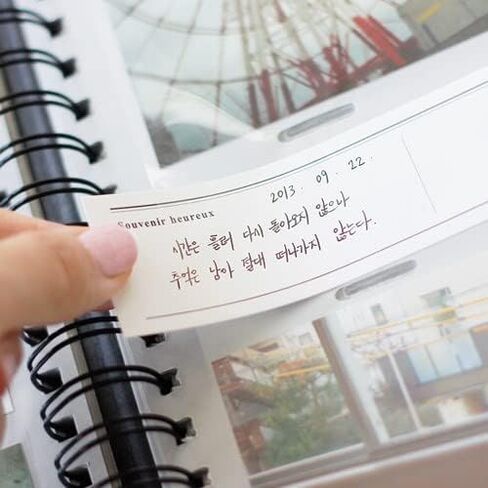 2013. 09. 22.
Souvenir heureux
시간은 흘러 다시 돌아오지 않으나
추억은 남아 절대 떠나가지 않는다.